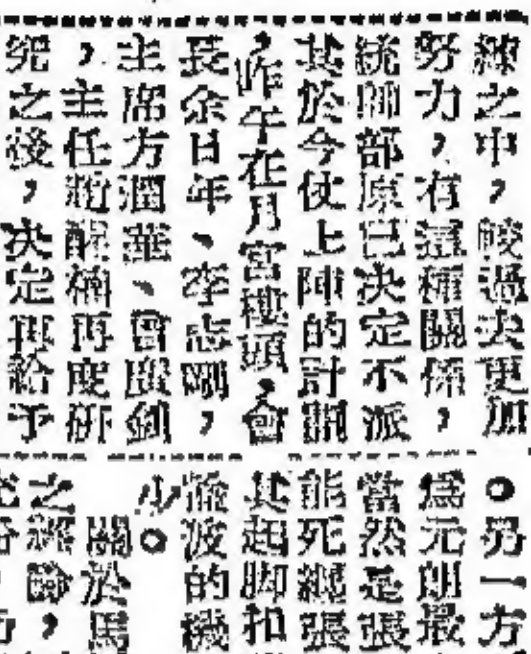 練之中，較過去更加
努力，有這種關係，
統帥部原已決定不派
其於今仗上陣的計劃
，昨午在月宮樓頭，會
長余日年、李志剛，
主席方潤華、曾廣釗
，主任趙醒楠再度研
究之後，决定再給予
。另一方
為元朗最
當然是張
能死纏張
其起脚扣
施波的機
少。
關於馬
之